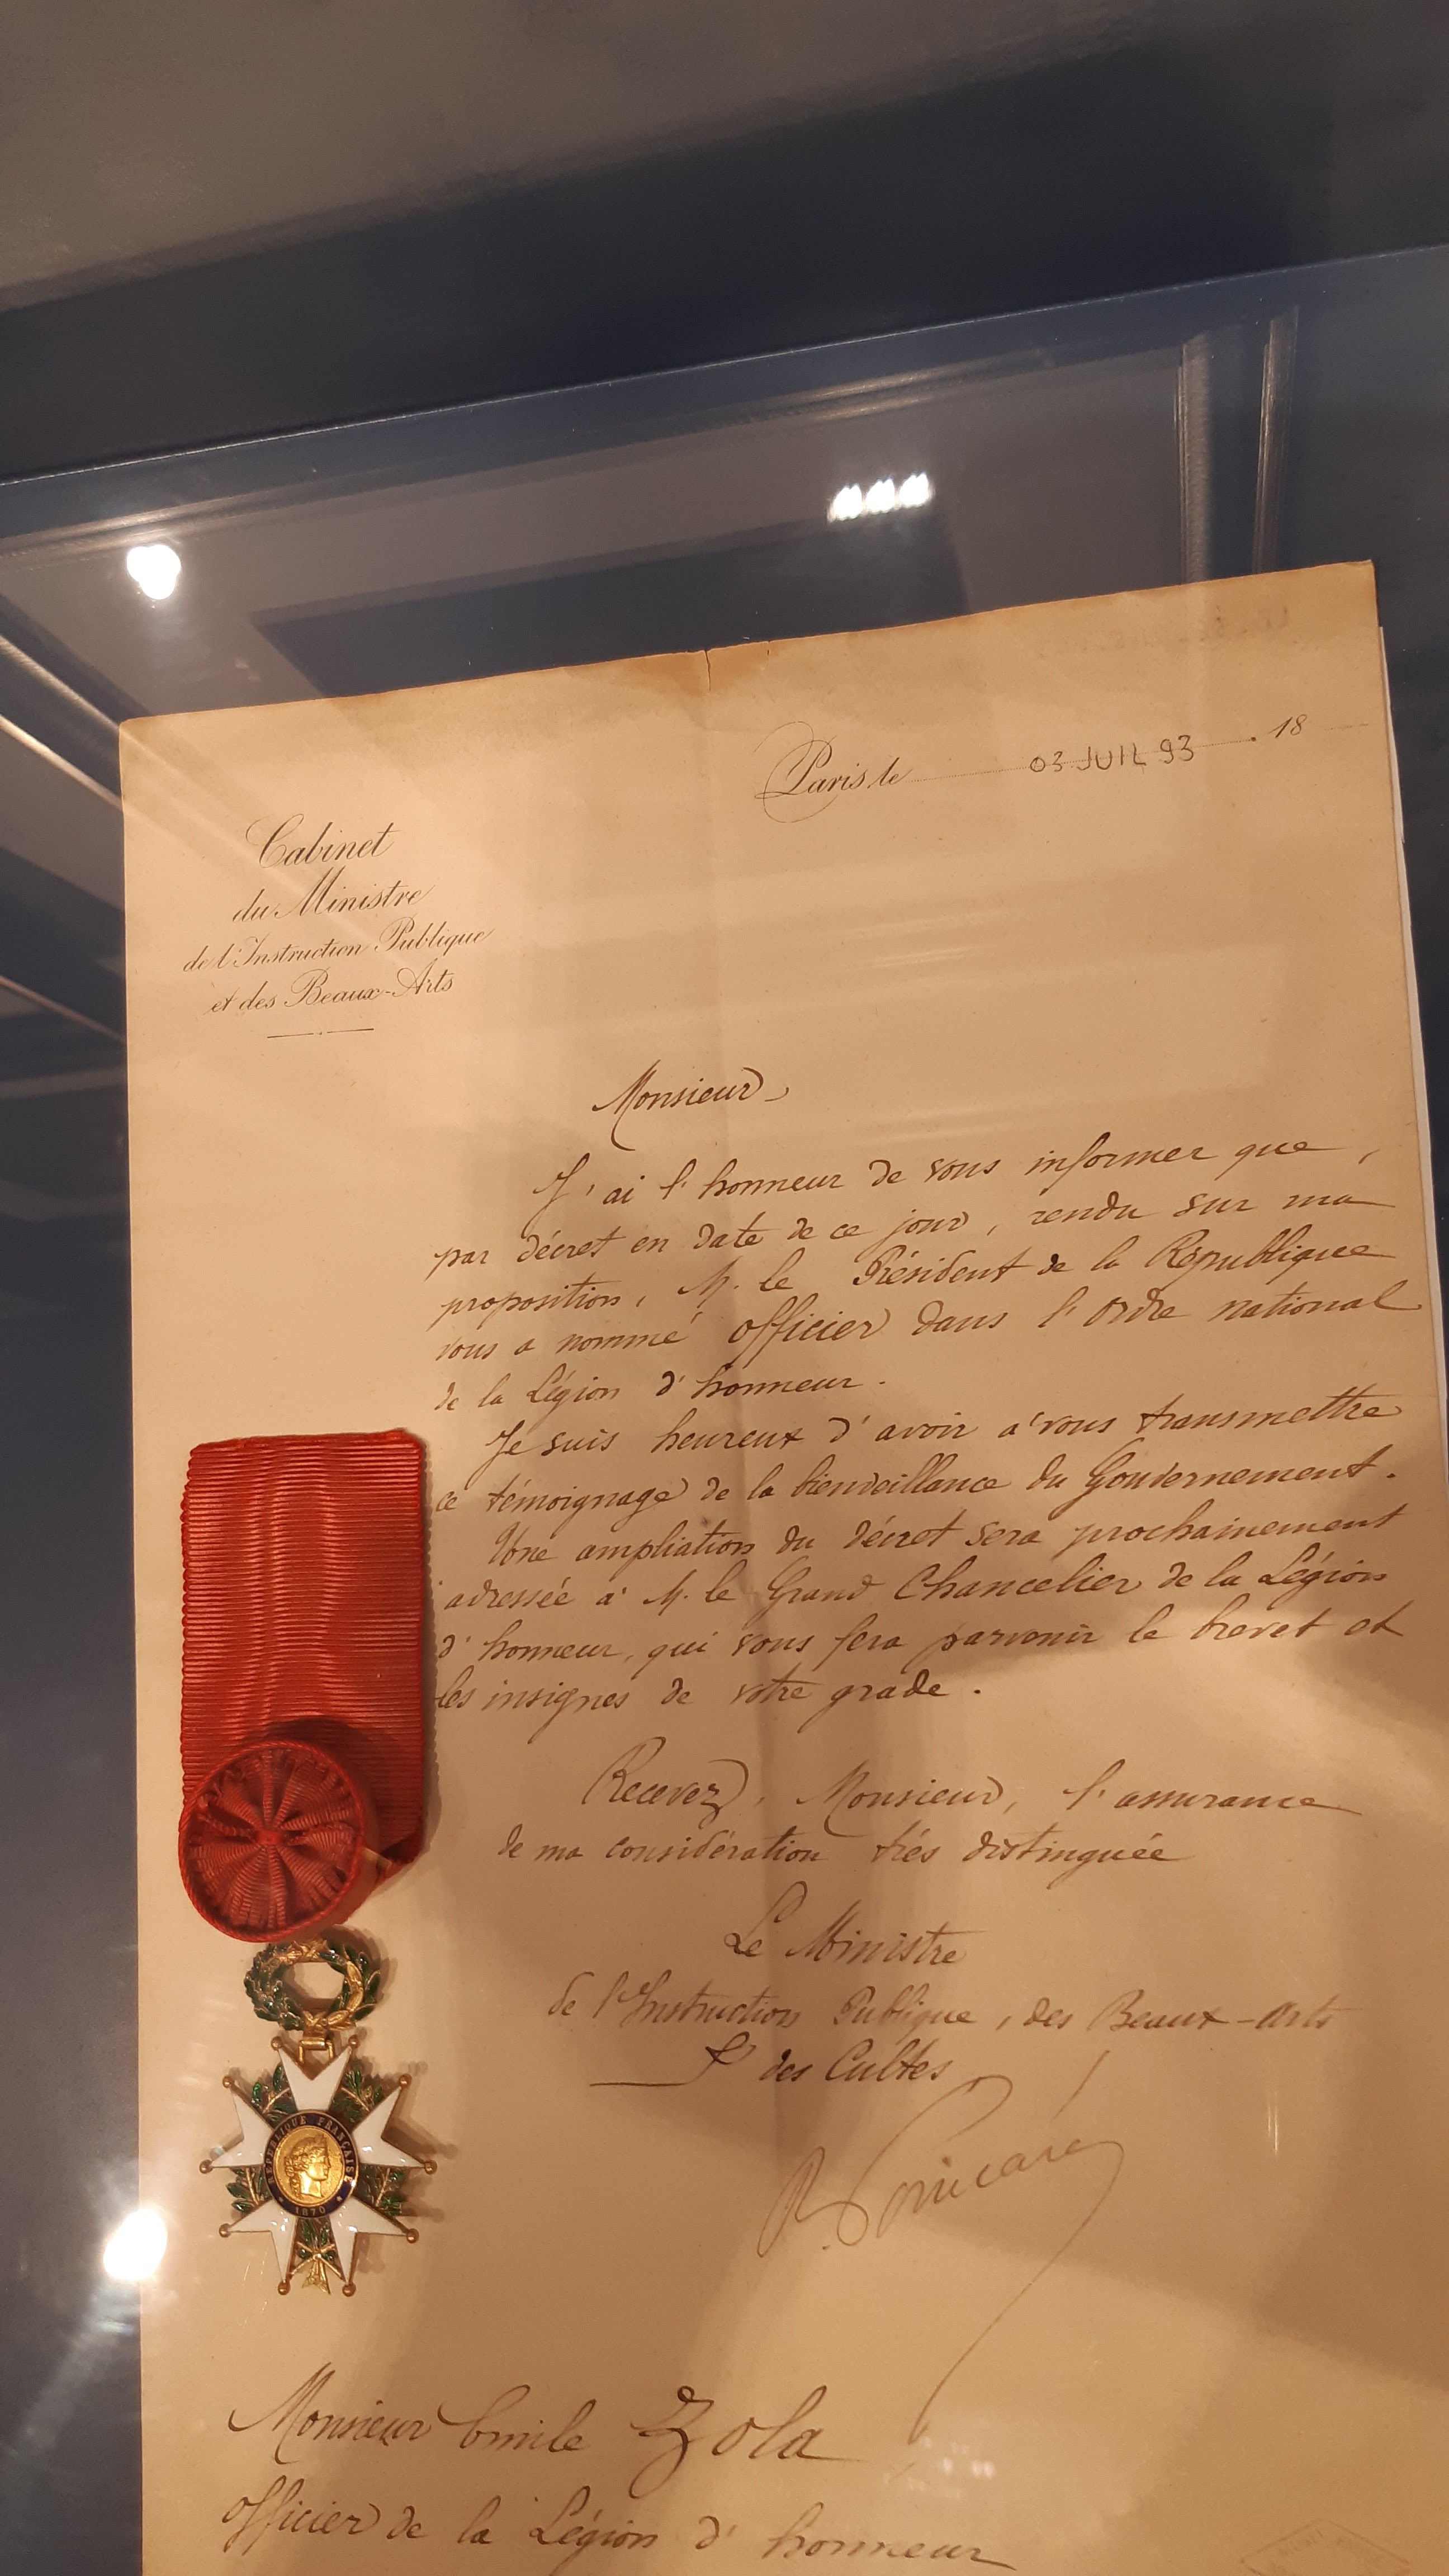 Paris, le 03 JUIL 93 . 18
Cabinet
du Ministre
de l'Instruction Publique
et des Beaux-Arts
Monsieur,
J'ai l'honneur de vous informer que,
par décret en date de ce jour, rendu sur ma
proposition, M. le Président de la République
vous a nommé officier dans l'Ordre national
de la Légion d'honneur.
Je suis heureux d'avoir à vous transmettre
ce témoignage de la bienveillance du Gouvernement.
Une ampliation du décret sera prochainement
adressée à M. le Grand Chancelier de la Légion
d'honneur, qui vous fera parvenir le brevet et
les insignes de votre grade.
Recevez, Monsieur, l'assurance
de ma considération très distinguée
Le Ministre
de l'Instruction Publique, des Beaux-Arts
& des Cultes
R. Poincaré
REPUBLIQUE FRANÇAISE
1870
Monsieur Emile Zola
officier de la Légion d'honneur